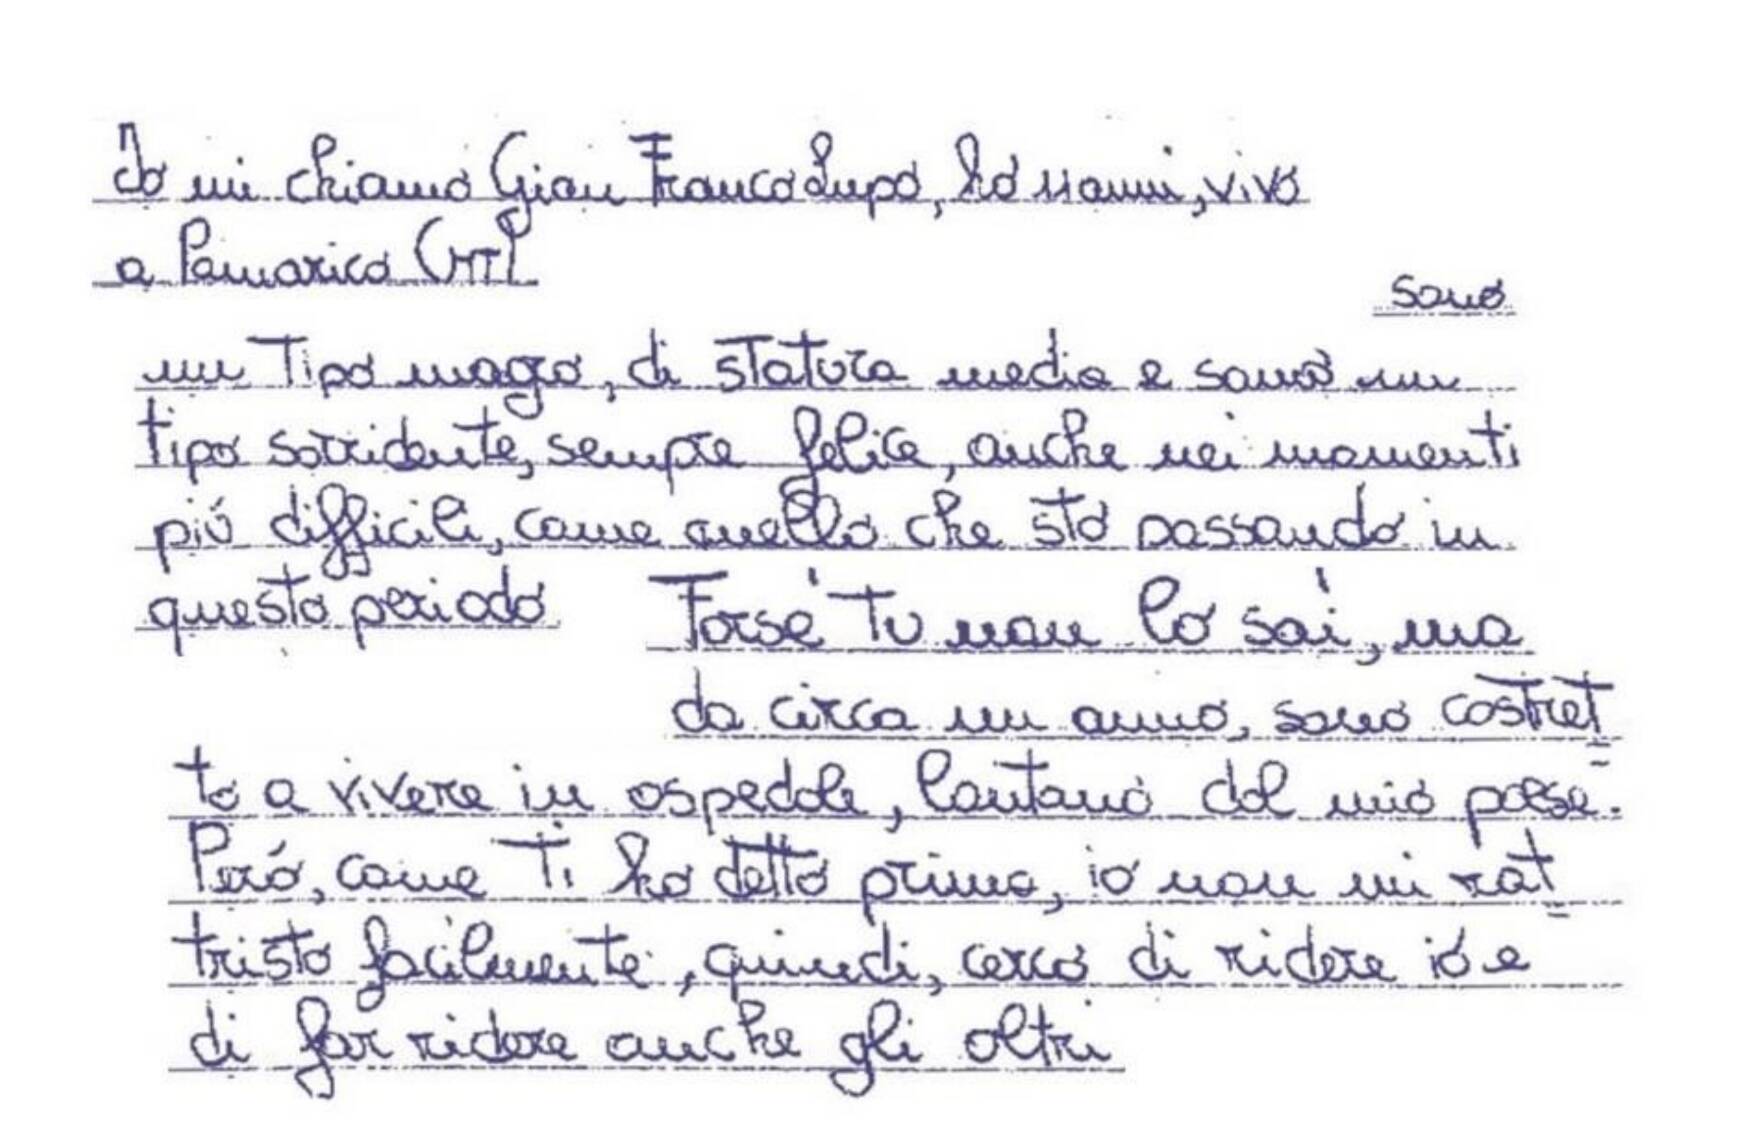 Io mi chiamo Gian Franco Lupo, ho 11 anni, vivo
a Pomarico (MT)
sono
un Tipo magro, di statura media e sono un
tipo sorridente, sempre felice, anche nei momenti
più difficili, come quello che sto passando in
questo periodo
Forse tu non lo sai, ma
da circa un anno, sono costret
to a vivere in ospedale, lontano dal mio paese.
Però, come Ti ho detto prima, io non mi rat
tristo facilmente, quindi, cerco di ridere io e
di far ridere anche gli altri